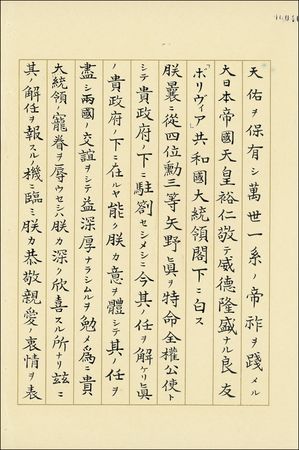 天佑ヲ保有シ萬世一系ノ帝祚ヲ踐メル
大日本帝國天皇裕仁敬テ威德隆盛ナル良友
「ボリヴィア」共和國大統領閣下ニ白ス
朕曩ニ從四位勳三等矢野眞ヲ特命全權公使ト
シテ貴政府ノ下ニ駐劄セシメシニ今其ノ任ヲ解ケリ眞
ノ貴政府ノ下ニ在ルヤ能ク朕カ意ヲ體シテ其ノ任ヲ
盡シ兩國ノ交誼ヲシテ益深厚ナラシムルヲ勉メ爲ニ貴
大統領ノ寵眷ヲ辱ウセシハ朕カ深ク欣喜スル所ナリ玆ニ
其ノ解任ヲ報スルノ機ニ臨ミ朕カ恭敬親愛ノ衷情ヲ表